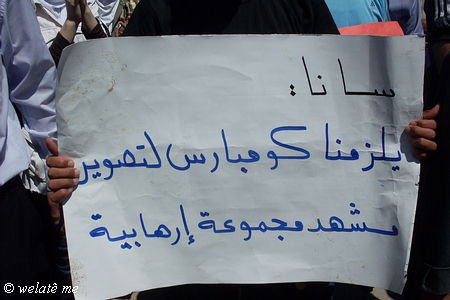 سانا:
يلزمنا كومبارس لتصوير
مشهد مجموعة إرهابية
© welatê me